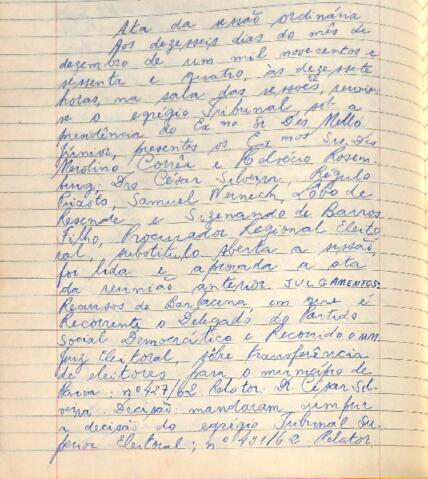 Ata da sessão ordinária
Aos dezesseis dias do mês de
dezembro de um mil novecentos e
sessenta e quatro, às dezessete
horas, na sala das sessões, reuniu-
se o egrégio Tribunal, sob a
presidência do Exmo Sr Des Mello
Júnior, presentes os Exmos Srs. Des
Merolino Corrêa e
Drs César Silveira, Régulo
Peixoto, Samuel Werneck, Lôbo de
Resende e Sizenando de Barros
Filho, Procurador Regional Eleito
ral, substituto. Aberta a sessão,
foi lida e aprovada a ata
da reunião anterior. JULGAMENTOS:
Recursos de Barbacena, em que é
Recorrente o Delegado do Partido
Social Democrático e Recorrido o MM
Juiz Eleitoral, sôbre transferência
de eleitores para o município de
Paiva; nº 427/62 Relator. Dr. César Sil-
veira. Decisão: mandaram cumprir
a decisão do egrégio Tribunal Su-
perior Eleitoral; nº 431/62. Relator